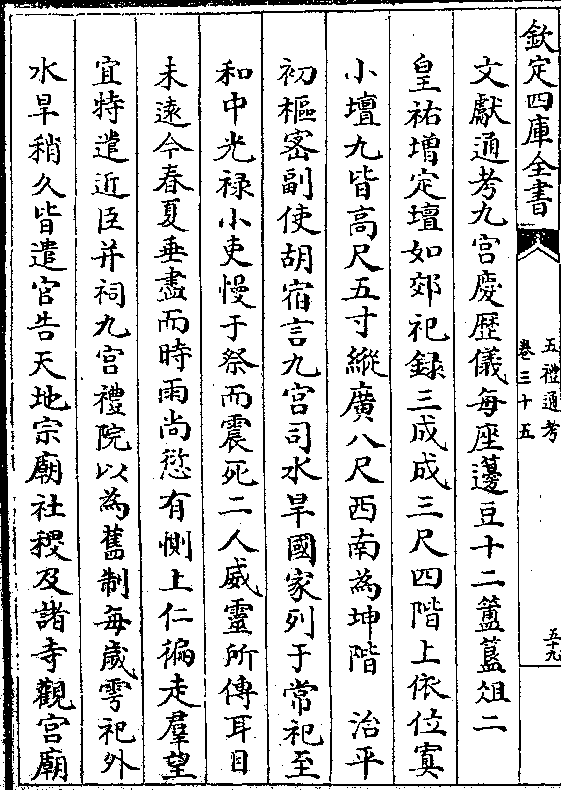 欽定四庫全書
五禮通考
卷三十五
五十九
文獻通考九宮慶歴儀每座籩豆十二簠簋俎二
皇祐增定壇如郊祀錄三成成三尺四階上依位寘
小壇九皆高尺五寸縱廣八尺西南為坤階　治平
初樞密副使胡宿言九宮司水旱國家列于常祀至
和中光禄小吏慢于祭而震死二人威靈所傳耳目
未遠今春夏垂盡而時雨尚愆有惻上仁徧走羣望
宜特遣近臣并祠九宮禮院以為舊制每歲雩祀外
水旱稍久皆遣官告天地宗廟社稷及諸寺觀宮廟